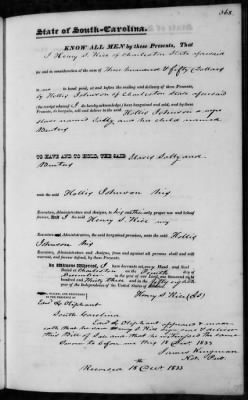 368
State of South-Carolina.
KNOW ALL MEN by these Presents, That
I Henry S. Hill of Charleston State aforesaid
for and in consideration of the sum of Three Hundred & fifty Dollars
to me in hand paid, at and before the sealing and delivery of these Presents,
by Hollis Johnson of Charleston State aforesaid
(the receipt whereof I do hereby acknowledge) have bargained and sold, and by these
Presents, do bargain, sell and deliver to the said Hollis Johnson a negro
slave named Sally and her child named
TO HAVE AND TO HOLD, THE SAID Slaves Sally and
unto the said Hollis Johnson his
Executors, Administrators and Assigns, to his and their only proper use and behoof
forever. And I the said Henry S. Hill my
Executors and Administrators, the said bargained premises, unto the said Hollis
Johnson his
Executors, Administrators and Assigns, from and against all persons shall and will
warrant, and forever defend, by these Presents.
In Witness Whereof, I have hereunto set my Hand and Seal
Dated at Charleston on the Fourth day of
December in the year of our Lord, one thousand eight
hundred and Thirty Three and in the fifty eighth
year of the Independence of the United States of America.
SIGNED, SEALED, AND DELIVERED
IN THE PRESENCE OF
Henry S. Hill (LS)
Edwd Oliphant
South Carolina
Edwd Oliphant appeared & made
oath that he saw Henry S. Hill sign and deliver
this Bill of Sale that he witnessed the same
Sworn to before me 18 Decr 1833
James Kingman
Not. Pub.
Recorded 18 Decr 1833